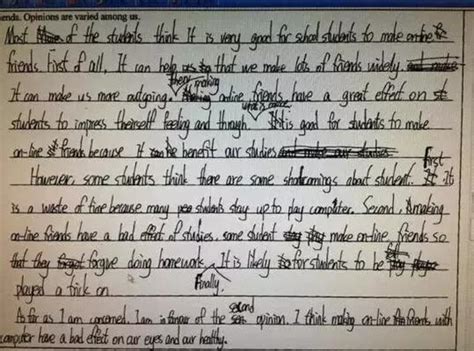 ends. Opinions are varied among us.
Most of the students think it is very good for school students to make on-line
friends. First of all, It can help us that we make lots of friends widely.
It can make us more outgoing. then making online friends have a great effect on
students to impress theirself feeling and through. what is more It is good for students to make
on-line friends because it can benefit our studies
However, some students think there are some shortcomings about student. First It
is a waste of time because many students stay up to play computer. Second, making
on-line friends have a bad effect of studies, some student make on-line friends so
that they forgive doing homework. It is likely for students to be
played a trick on. Finally,
As far as I am concerned, I am in favour of the second opinion. I think making on-line friends with
computer have a bad effect on our eyes and our healthy.